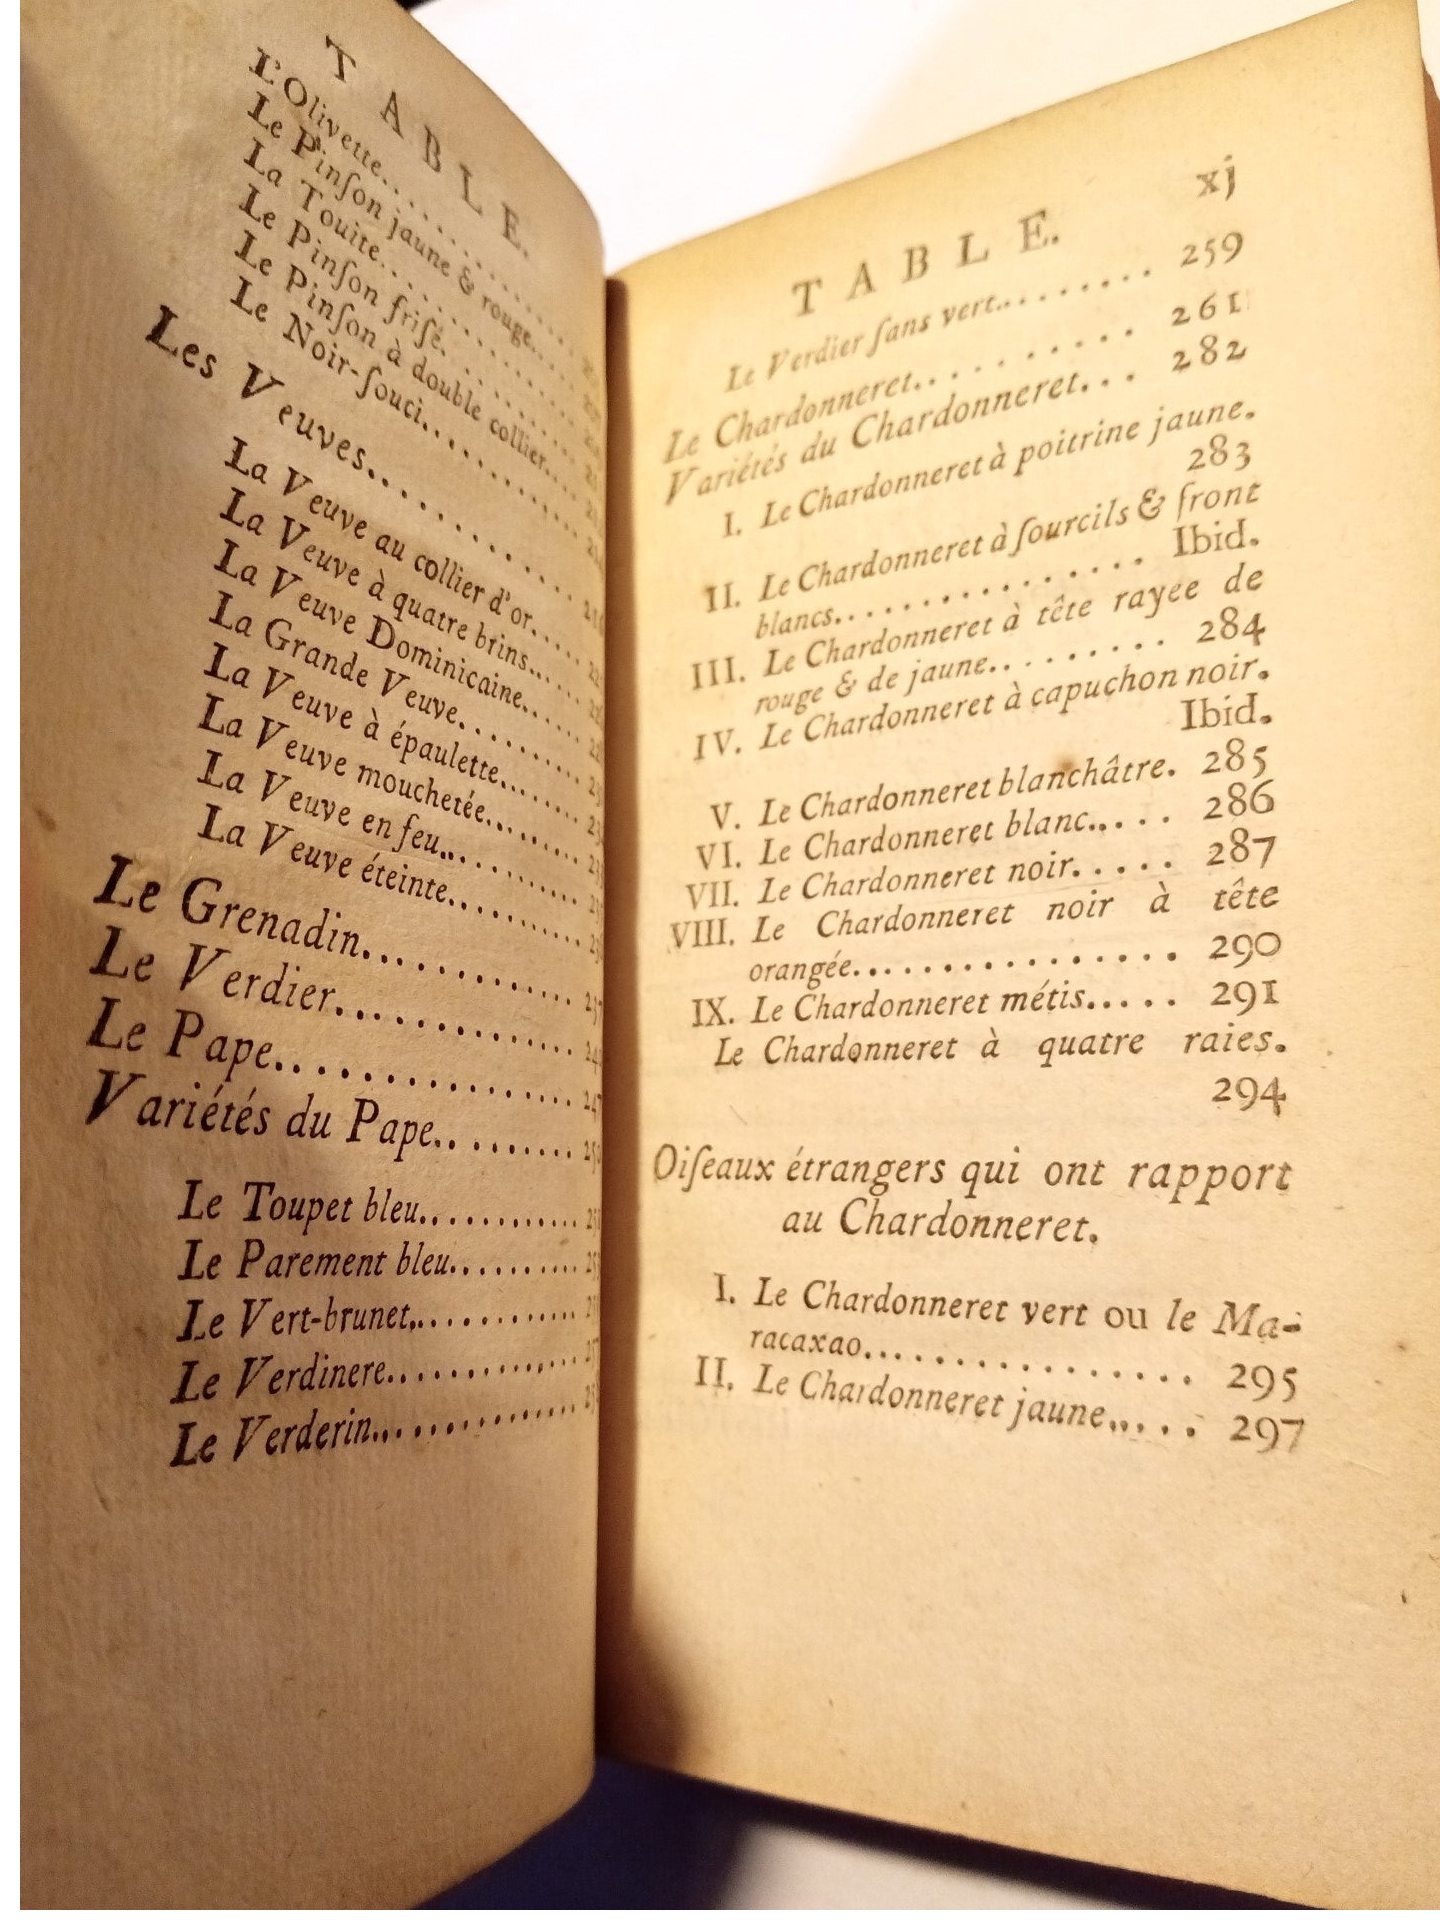 TABLE.
L'Olivette..........
Le Pinſon jaune & rouge....
La Touite..........
Le Pinſon friſé..........
Le Pinſon à double collier....
Le Noir-ſouci..........
Les Veuves..........
La Veuve au collier d'or.....
La Veuve à quatre brins......
La Veuve Dominicaine......
La Grande Veuve..........
La Veuve à épaulette........
La Veuve mouchetée........
La Veuve en feu..........
La Veuve éteinte..........
Le Grenadin..........
Le Verdier..........
Le Pape..........
Variétés du Pape.........
Le Toupet bleu..........
Le Parement bleu..........
Le Vert-brunet..........
Le Verdinere..........
Le Verderin..........
xj
TABLE.
Le Verdier ſans vert......... 259
Le Chardonneret.......... 261
Variétés du Chardonneret... 282
I. Le Chardonneret à poitrine jaune.
283
II. Le Chardonneret à ſourcils & front
blancs............... Ibid.
III. Le Chardonneret à tête rayee de
rouge & de jaune......... 284
IV. Le Chardonneret à capuchon noir.
Ibid.
V. Le Chardonneret blanchâtre. 285
VI. Le Chardonneret blanc..... 286
VII. Le Chardonneret noir..... 287
VIII. Le Chardonneret noir à tête
orangée................. 290
IX. Le Chardonneret métis..... 291
Le Chardonneret à quatre raies.
294
Oiſeaux étrangers qui ont rapport
au Chardonneret.
I. Le Chardonneret vert ou le Ma-
racaxao................ 295
II. Le Chardonneret jaune..... 297